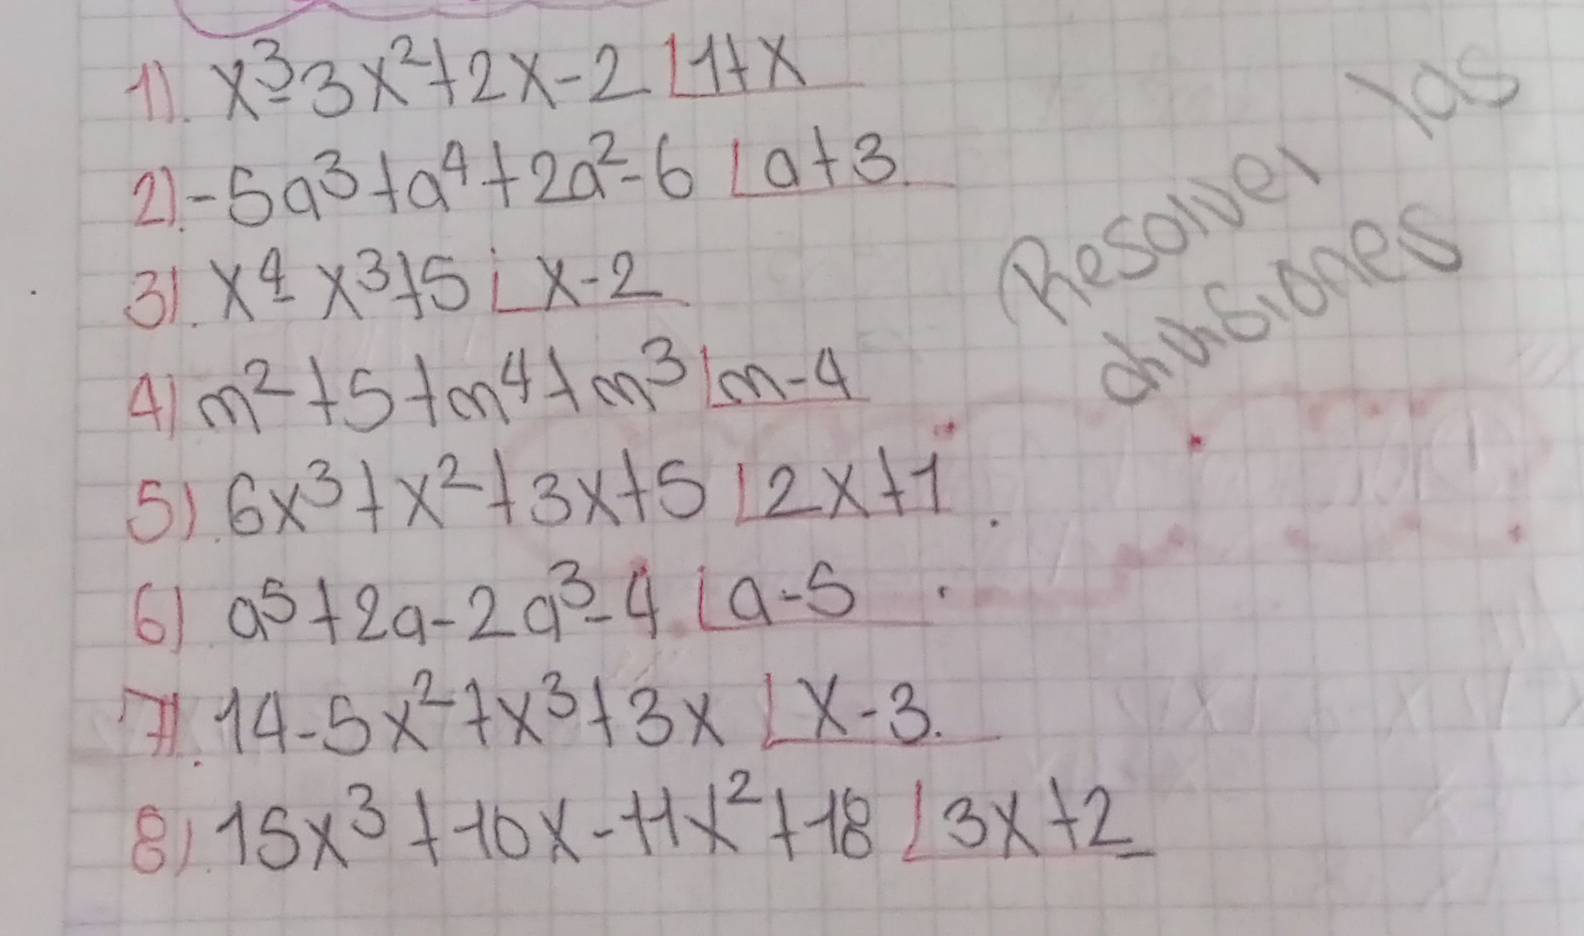 1). x³-3x²+2x-2 |1+x
2).-5a³+a⁴+2a²-6 |a+3.
3). x⁴-x³+5 |x-2
4) m²+5+m⁴+m³ |m-4
5). 6x³+x²+3x+5 |2x+1.
6). a⁵+2a-2a³-4 |a-5.
7). 14-5x²+x³+3x |x-3.
8). 15x³+10x-11x²+18 |3x+2
Resolver las
divisiones